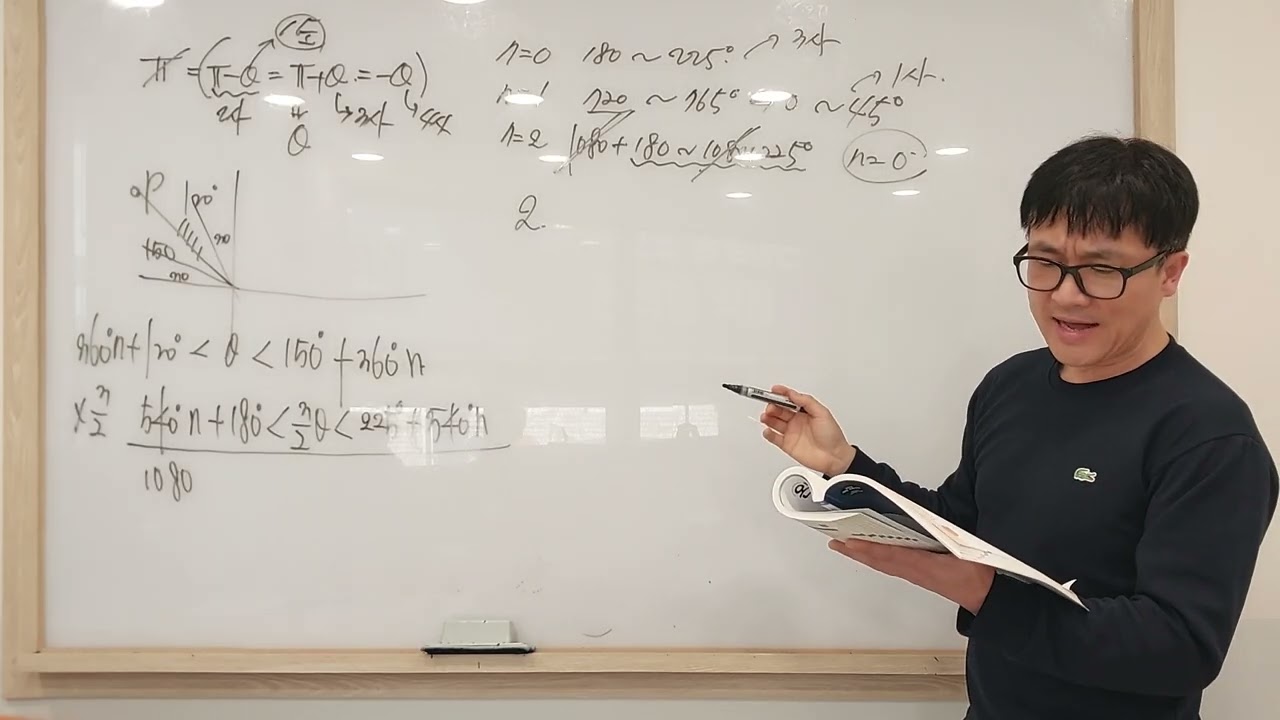 π = (π-θ = π+θ = -θ)
2사 θ 3사 4사
n=0 180 ~ 225° → 3사
720 ~ 765° ~ 45° → 1사.
n=2 1080+180 ~ 1080+225° n=0
2.
P 120°
30
150
30
360°n+120° < θ < 150°+360°n
×3/2 540°n+180° < 3/2θ < 225°+540°n
1080